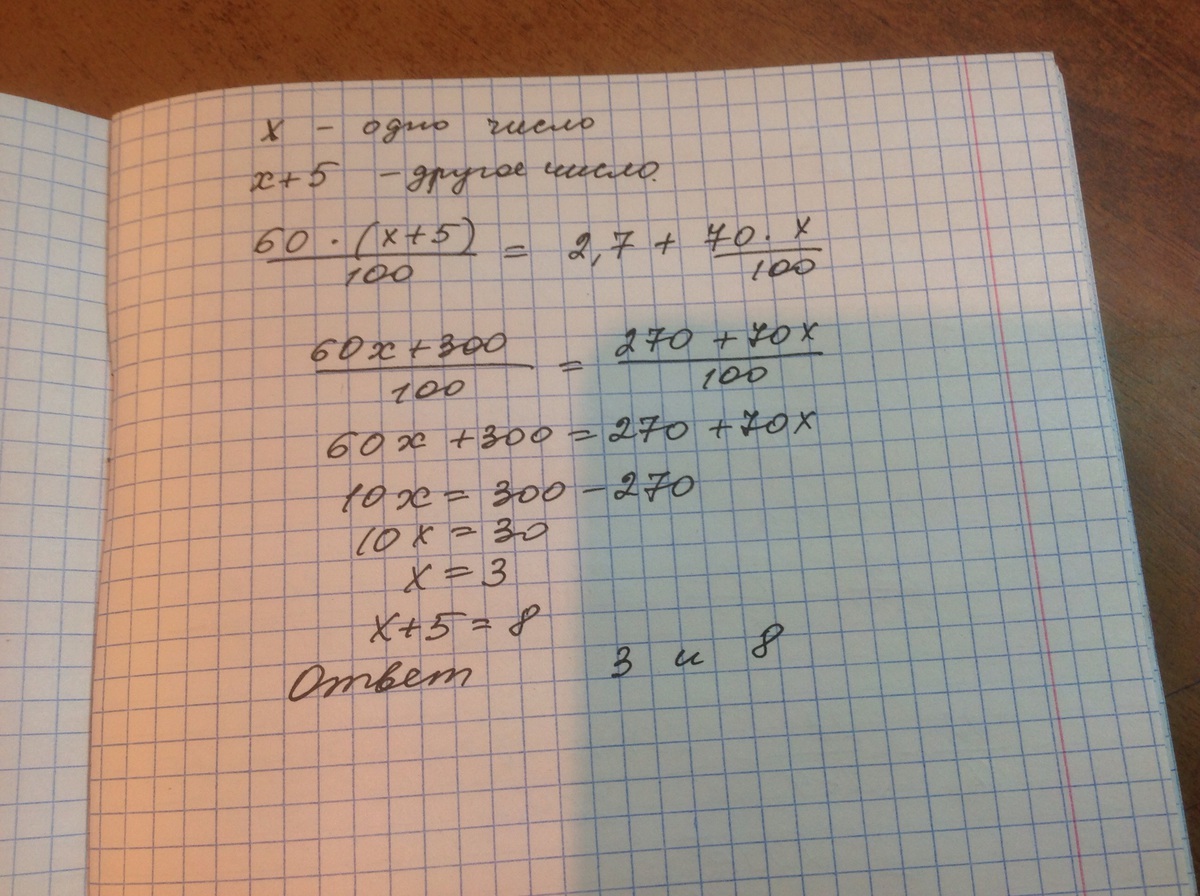 х - одно число
х+5 - другое число.
60 · (х+5) / 100 = 2,7 + 70 · х / 100
60х+300 / 100 = 270 +70х / 100
60х +300 = 270 +70х
10х = 300 - 270
10х = 30
х = 3
х+5 = 8
Ответ 3 и 8